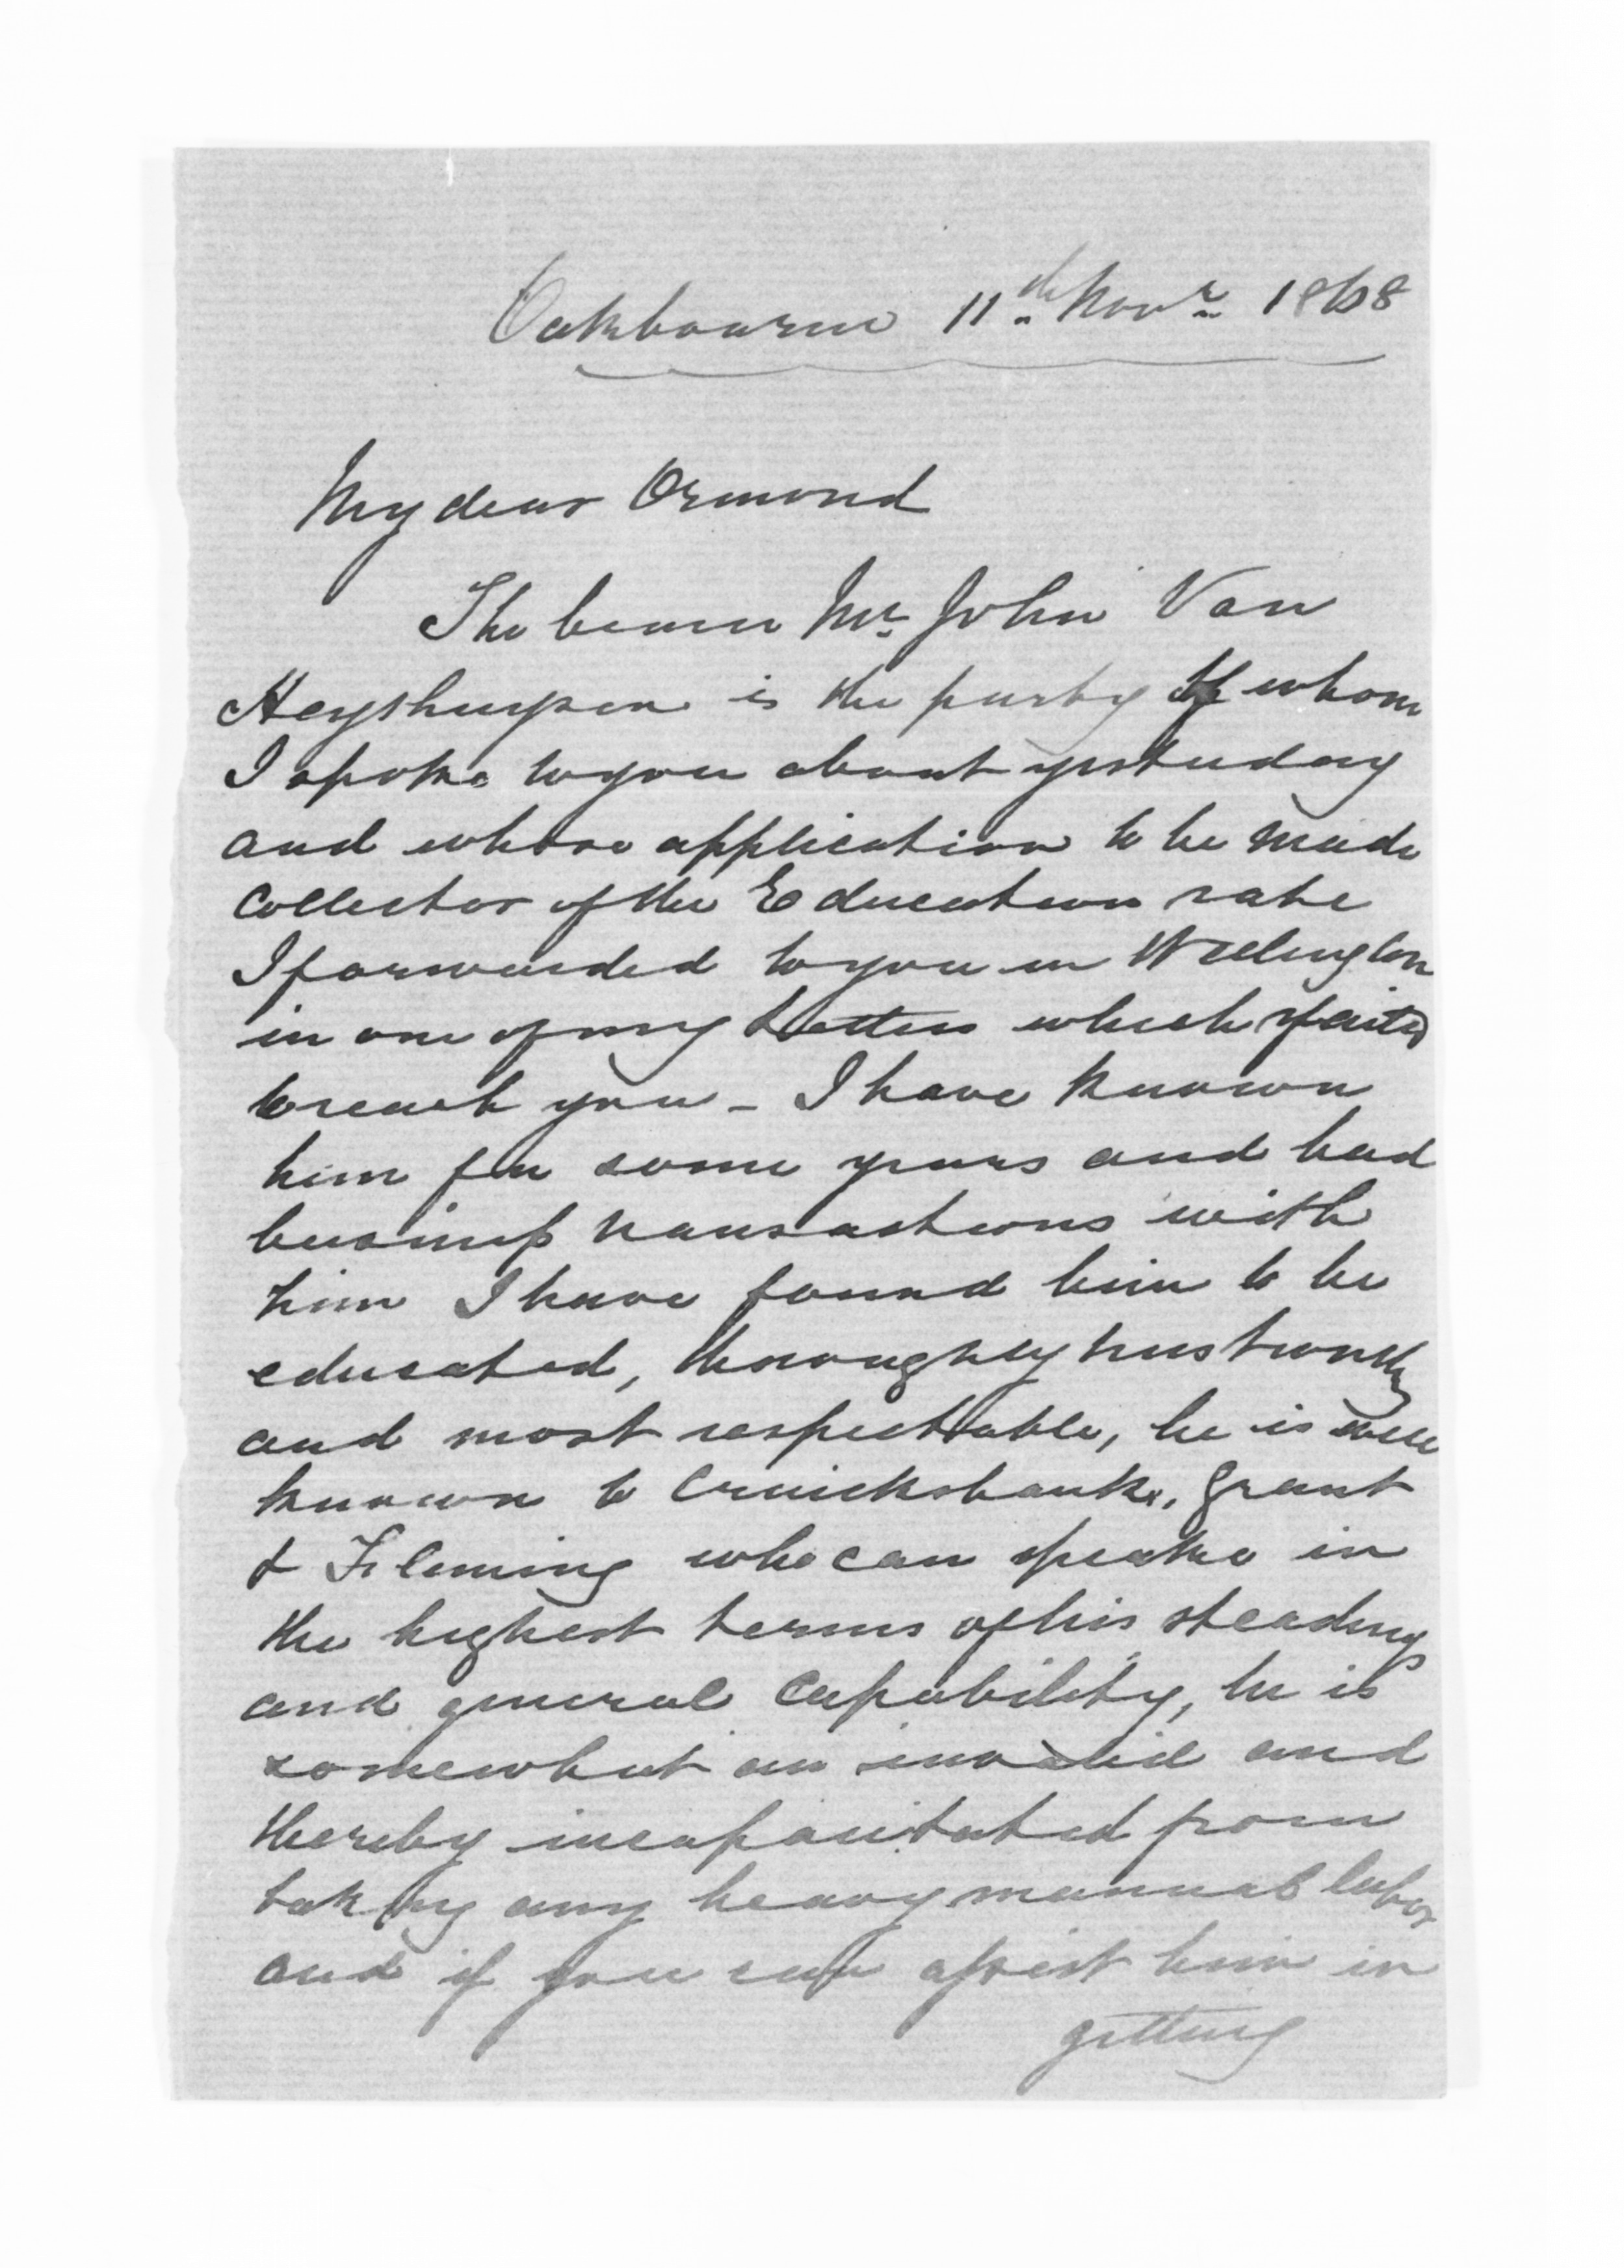 Oakbourne 11th Novr 1868
My dear Ormond
The bearer Mr John Van
Heyshuysen is the party of whom
I spoke to you about yesterday
and whose application to be made
collector of the Education rate
I forwarded to you in Wellington
in one of my letters which failed
to reach you - I have known
him for some years and had
business transactions with
him I have found him to be
educated, thoroughly trustworthy
and most respectable, he is well
known to Cruickshank, Grant
& Fleming who can speake in
the highest terms of his steadings
and general capability, he is
somewhat an invalid and
thereby incapacitated from
taking any heavy manual labor
and if you can assist him in
getting